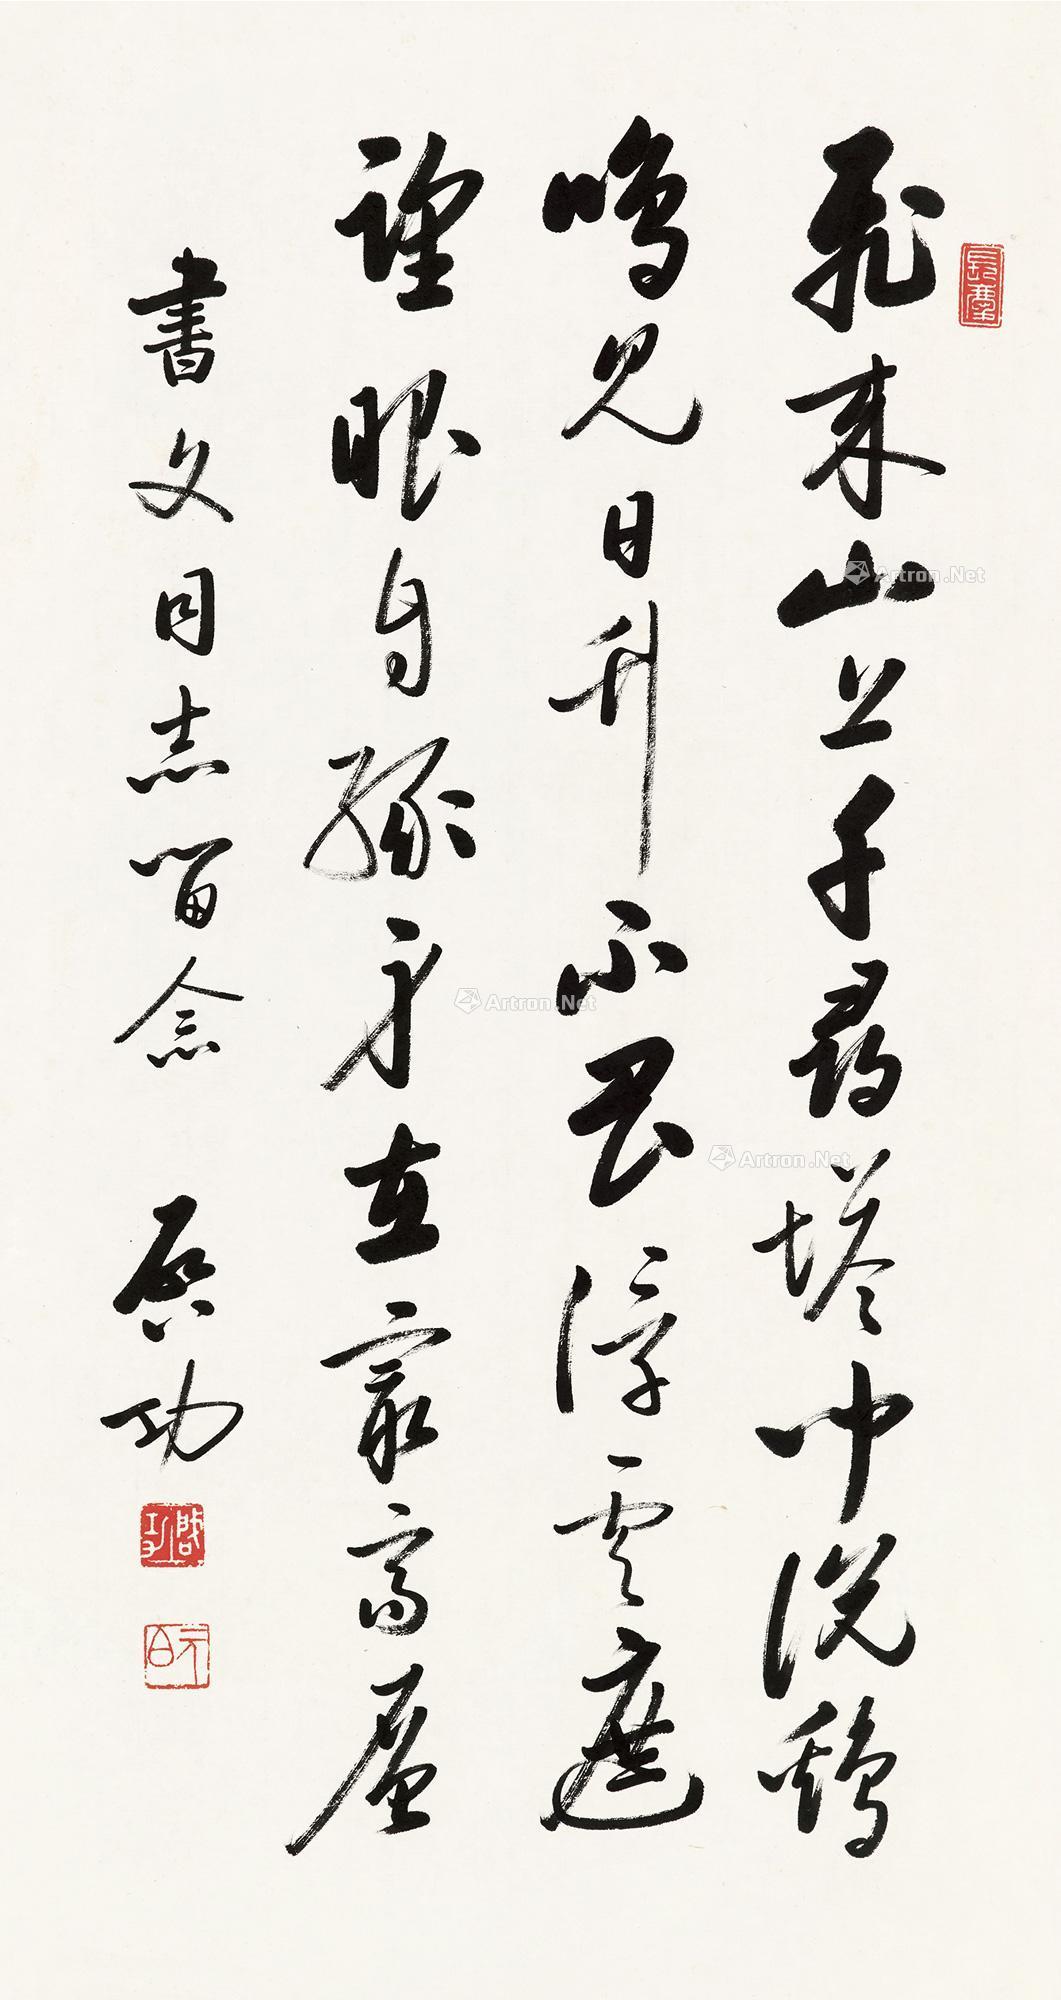 飛来山上千尋塔聞説鷄
鳴見日升不畏浮雲遮
望眼自緣身在最高層
書文同志留念 啓功
啓功
元白
Artron.Net
Artron.Net
Artron.Net